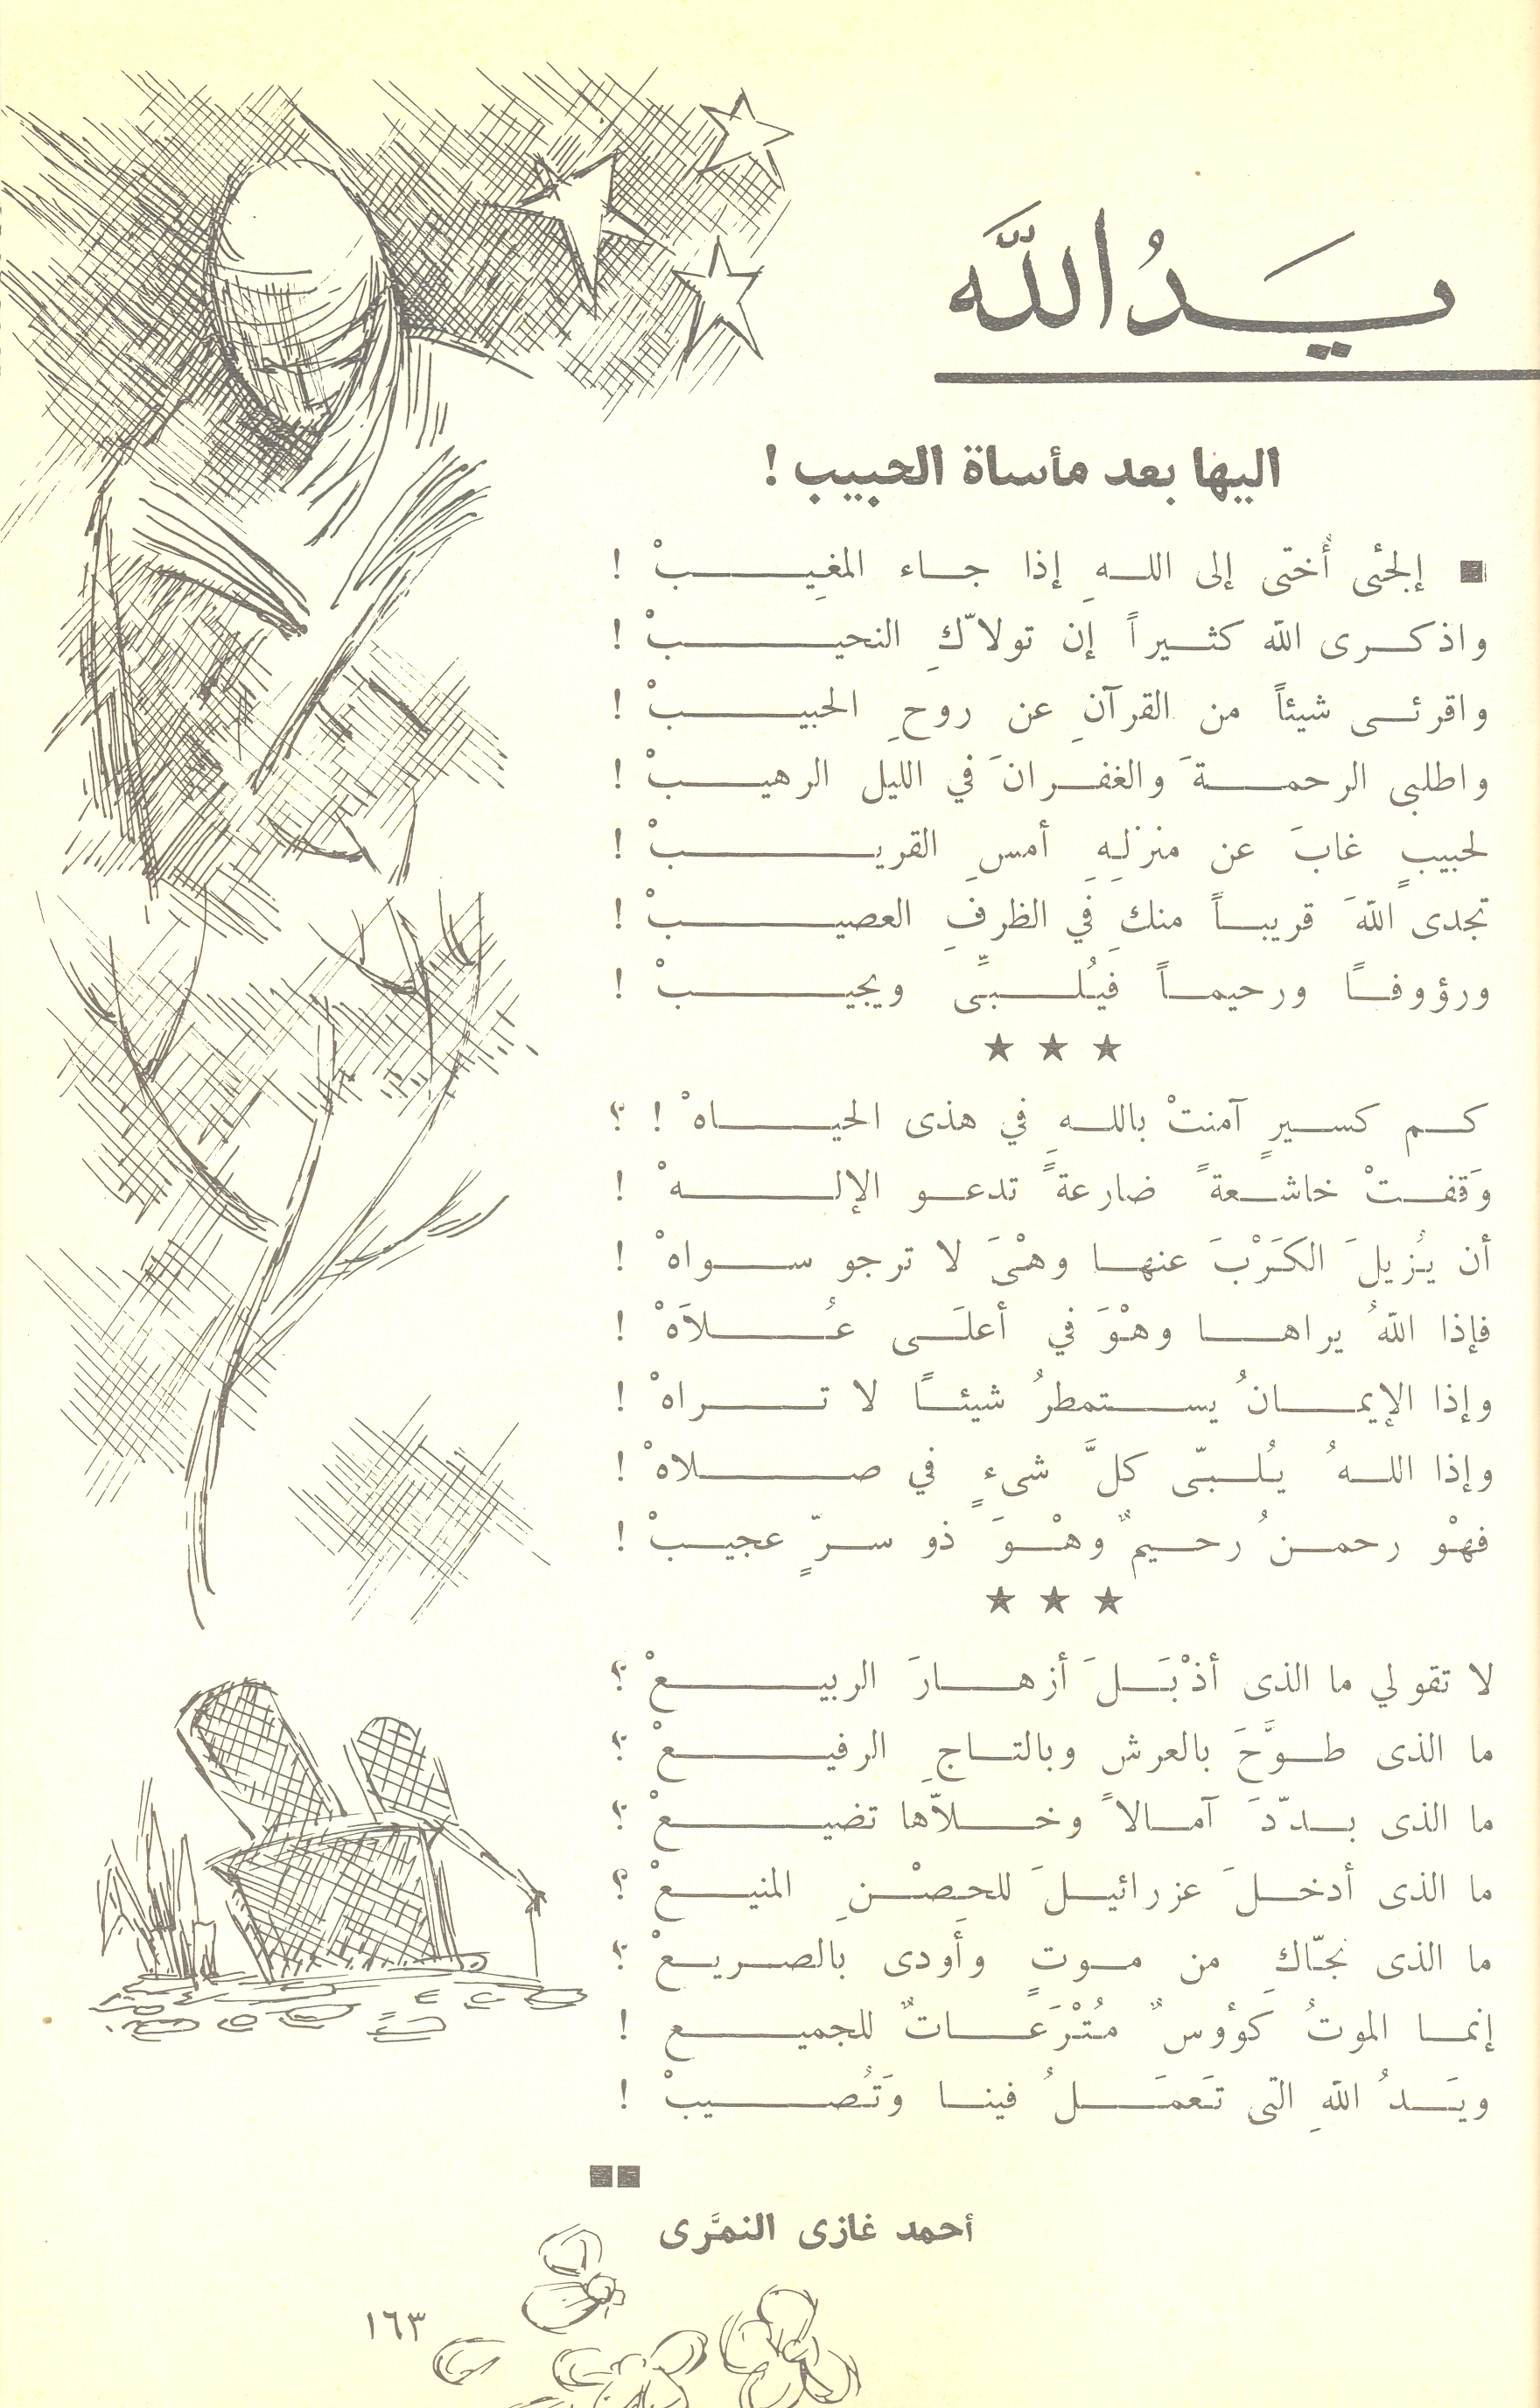 يَدُ اللَّه
اليها بعد مأساة الحبيب !
■ إلجئى أُختى إلى اللهِ إذا جاء المغِيبْ !
واذكرى اللّه كثيراً إن تولاّكِ النحيبْ !
واقرئى شيئاً من القرآنِ عن روحِ الحبيبْ !
واطلبى الرحمةَ والغفرانَ في الليل الرهيبْ !
لحبيبٍ غابَ عن منزلِهِ أمسِ القريبْ !
تجدى اللّهَ قريباً منكِ في الظرفِ العصيبْ !
ورؤوفاً ورحيماً فيُلبىِّ ويجيبْ !
★ ★ ★
كم كسيرٍ آمنتْ باللهِ في هذى الحياهْ ! ؟
وَقفتْ خاشعةً ضارعةً تدعو الإلهْ !
أن يُزيلَ الكَرْبَ عنها وهْىَ لا ترجو سواهْ !
فإذا اللّهُ يراها وهْوَ في أعلَى عُلاَهْ !
وإذا الإيمانُ يستمطرُ شيئاً لا تراهْ !
وإذا اللهُ يُلبّى كلَّ شىءٍ في صلاهْ !
فهْوْ رحمنُ رحيمٌ وهْوَ ذو سرٍّ عجيبْ !
★ ★ ★
لا تقولي ما الذى أذْبَلَ أزهارَ الربيعْ ؟
ما الذى طوَّحَ بالعرشِ وبالتاجِ الرفيعْ ؟
ما الذى بدّدَ آمالاً وخلاّها تضيعْ ؟
ما الذى أدخلَ عزرائيلَ للحِصْنِ المنيعْ ؟
ما الذى نجّاكِ من موتٍ وأَودى بالصريعْ ؟
إنما الموتُ كَوُؤسٌ مُتْرَعاتٌ للجميع !
ويَدُ اللّهِ التى تَعمَلُ فينا وَتُصيبْ !
■■
أحمد غازى النمَّرى
١٦٣